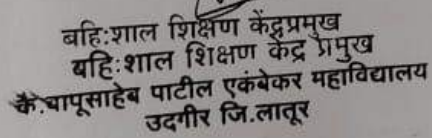 बहि:शाल शिक्षण केंद्रप्रमुख
बहि:शाल शिक्षण केंद्र प्रमुख
कै.बापूसाहेब पाटील एकंबेकर महाविद्यालय
उदगीर जि.लातूर